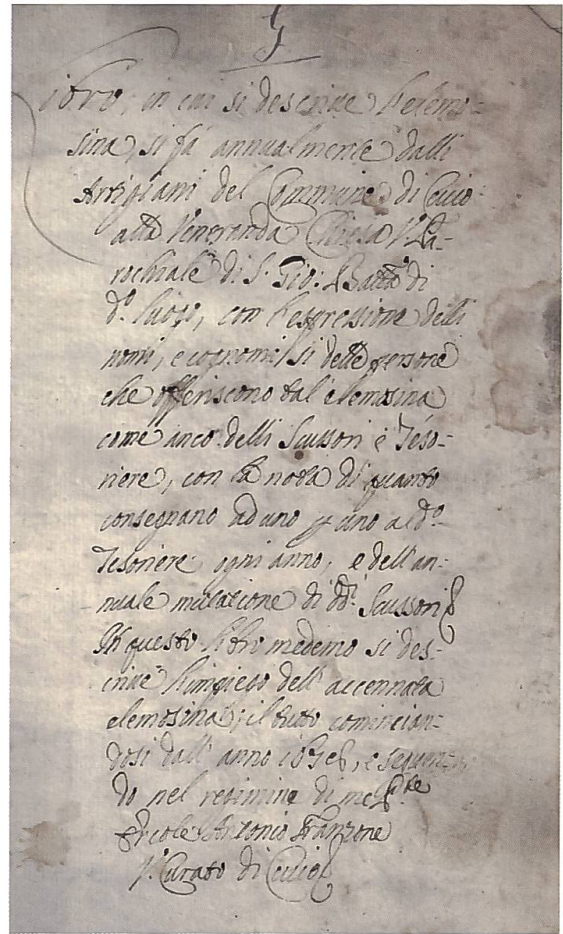 ibro, in cui si descrive l'elemo-
sina, si fà annualmente dalli
Artigiani del Commune di Civio
alla Veneranda Chiesa Pa-
rochiale di S. Gio: Batta di
do. luogo, con l'espressione delli
nomi, e cognomi si delle persone
che offeriscono tal elemosina
come anco delli Scussori è Téso-
riere, con la nota di quanto
consegnano ad uno p uno al do.
Tesoriere ogni anno, e dell'an-
nuale mutatione di ddi Scussori
In questo libro medemo si des-
crive l'impiego dell'accennata
elemosina, il tutto comincian-
dosi dall'anno, e sequen-
do nel regimine di me
Ercole Antonio Franzone
V. Curato di Civio